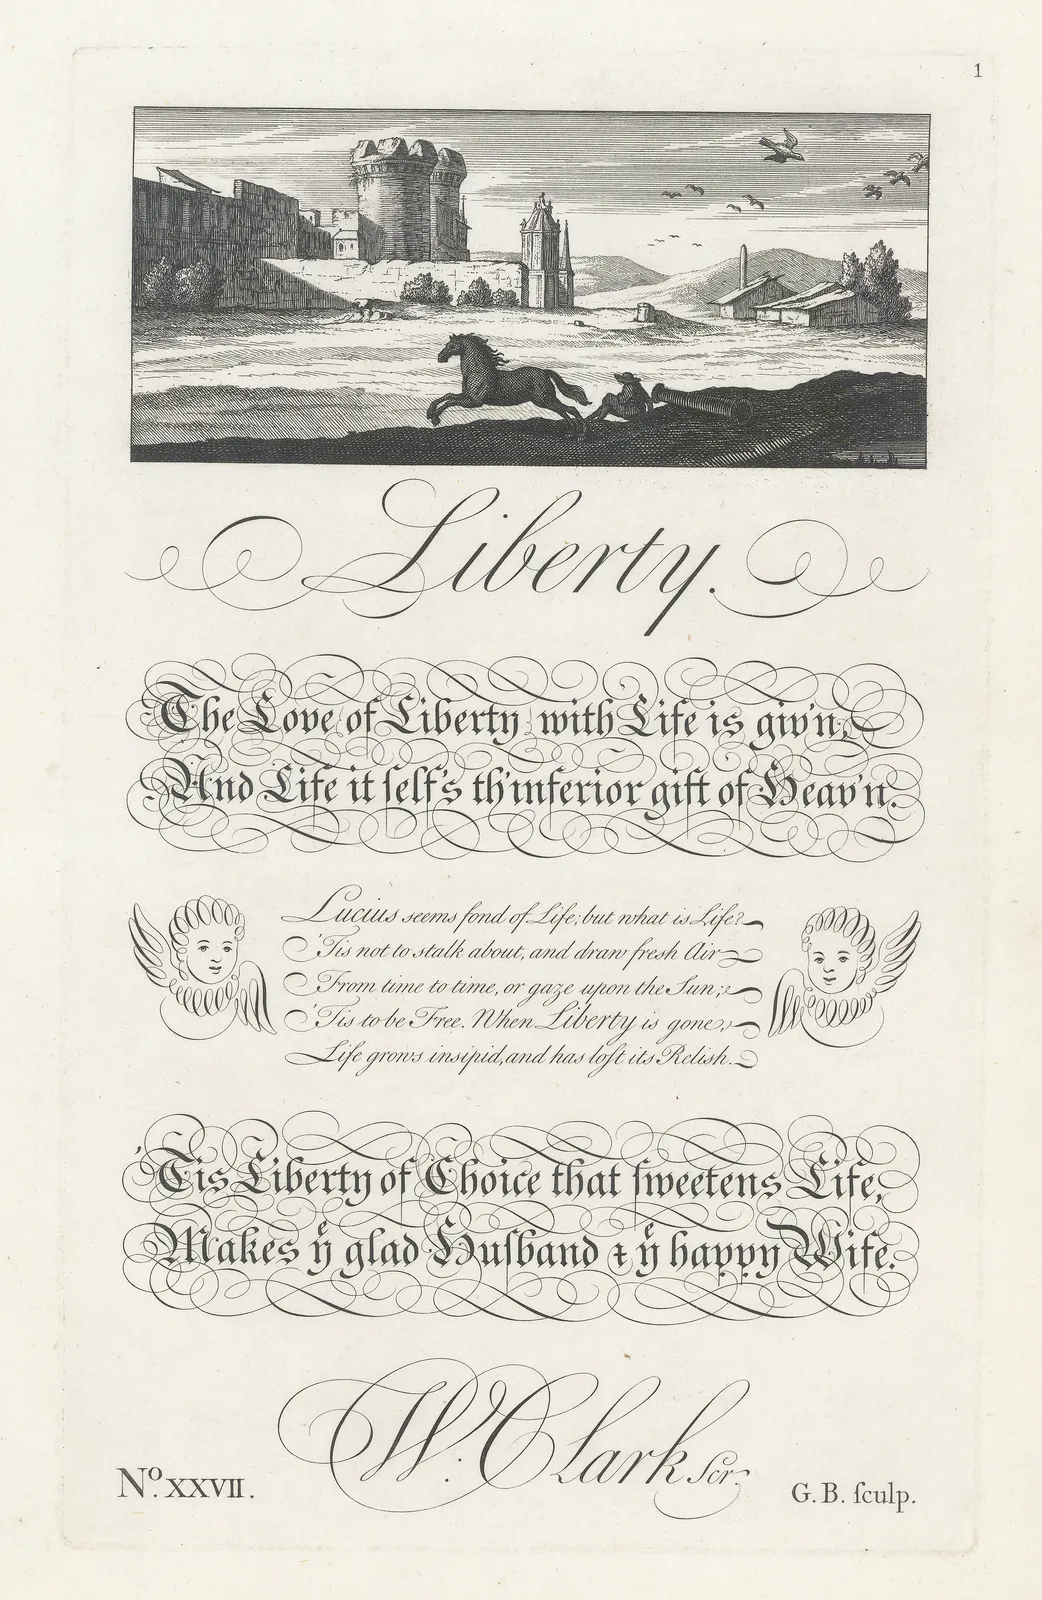 1
Liberty.
The Love of Liberty with Life is giv'n,
And Life it ſelf's th'inferior gift of Heav'n.
Lucius seems fond of Life; but what is Life?
'Tis not to stalk about, and draw fresh Air
From time to time, or gaze upon the Sun;
'Tis to be Free. When Liberty is gone,
Life grows insipid, and has loſt its Relish.
'Tis Liberty of Choice that ſweetens Life,
Makes yͤ glad Huſband & yͤ happy Wife.
W. Clark Scr.
No. XXVII.
G. B. ſculp.